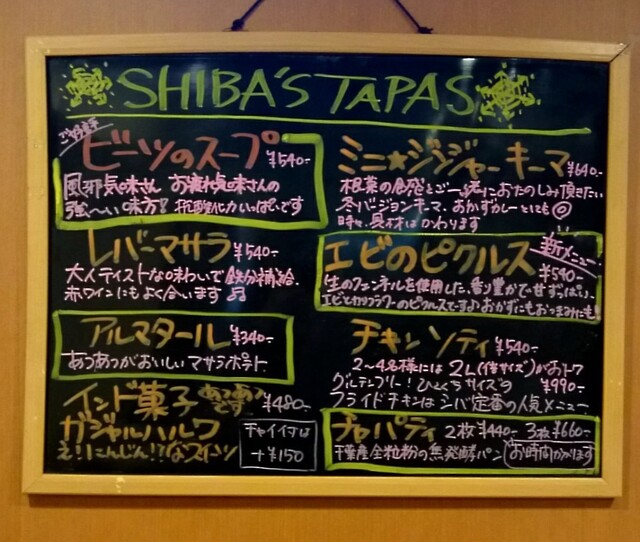 SHIBA'S TAPAS
ご好評
ビーツのスープ ¥540-
風邪気味さん お疲れ気味さんの
強〜い味方! 抗酸化力いっぱいです
レバーマサラ ¥540-
大人テイストな味わいで 鉄分補給。
赤ワインにもよく合います♫
アルマタール ¥340-
あつあつがおいしい マサラポテト
インド菓子 あつあつです ¥480-
ガジャルハルワ
え!にんじん!?なスイーツ
チャイ付は
+¥150
ミニ★ジンジャーキーマ ¥640-
根菜の
と ご一緒におたのしみ頂きたい
冬バージョンキーマ。おかずカレーとしても◎
時々、具材はかわります
新メニュー
エビのピクルス ¥590-
生のフェンネルを使用した、香り豊かで甘ずっぱい、
エビとカリフラワーのピクルスですよ♪おかずにもおつまみにも!
チキンソティ ¥540-
2〜4名様には 2L(倍サイズ)がおトク
¥990-
グルテンフリー! ひとくちサイズの
フライドチキンは シバ定番の人気メニュー
チャパティ 2枚¥440- 3枚¥660-
千葉産全粒粉の無発酵パン お時間かかります